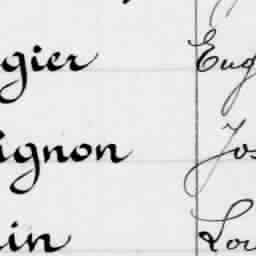 gier Eug
ignon Jos
in Lou